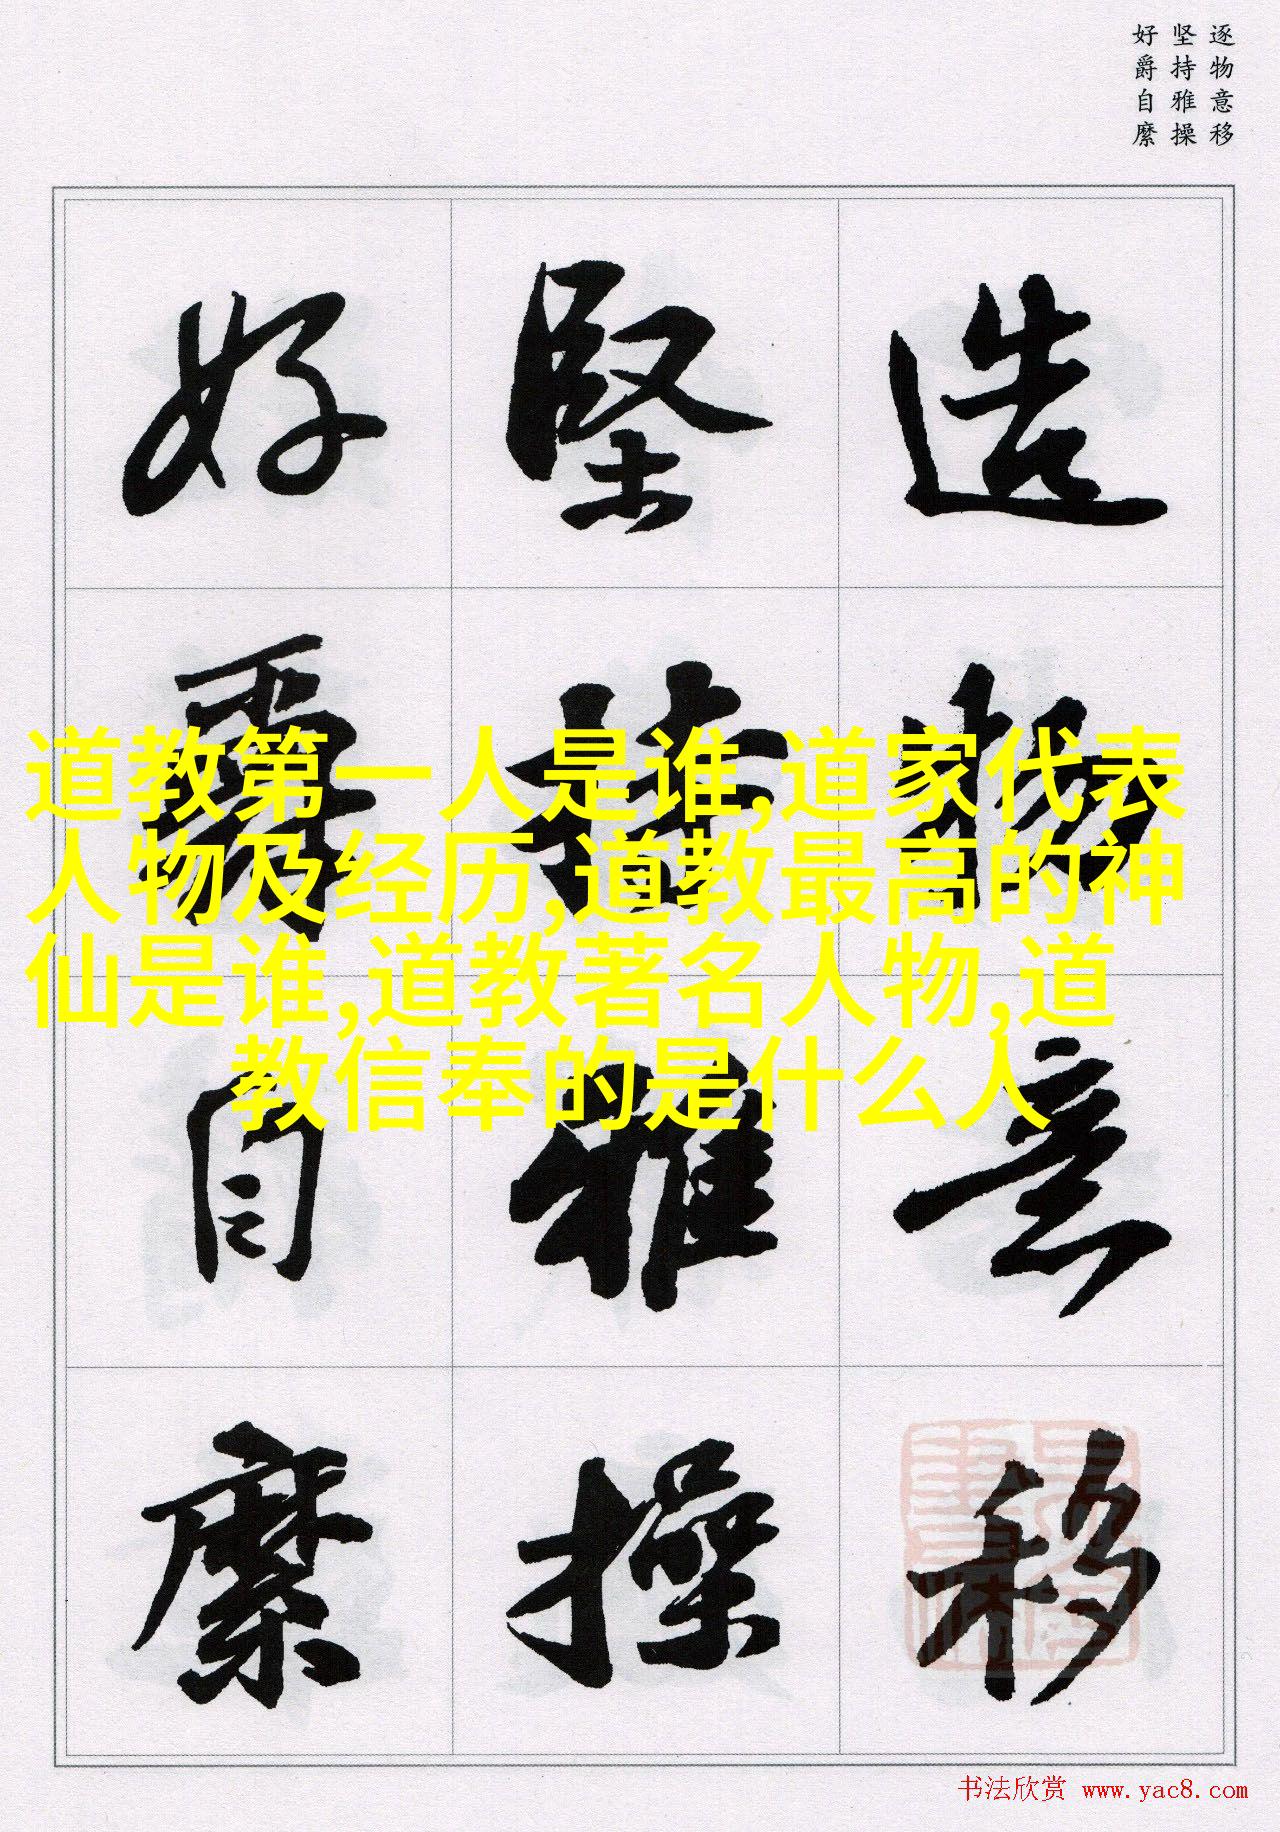 逐物意移
坚持雅操
好爵自縻
造物意移
堅持雅操
好爵自縻
道教第一人是谁,道家代表
人物及经历,道教最高的神
仙是谁,道教著名人物,道
教信奉的是什么人
书法欣赏 www.yac8.com